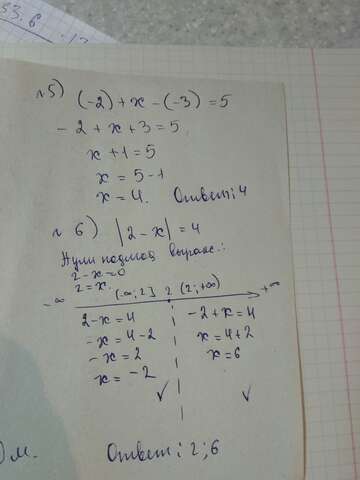 53.6
№5) (-2)+x-(-3)=5
-2+x+3=5
x+1=5
x=5-1
x=4. Ответ: 4
№6) |2-x|=4
Нули подмод. выраж.:
2-x=0
2=x.
-∞ (-∞; 2] 2 (2; +∞) +∞
2-x=4 -2+x=4
-x=4-2 x=4+2
-x=2 x=6
x=-2
✓ ✓
)м. Ответ: 2; 6